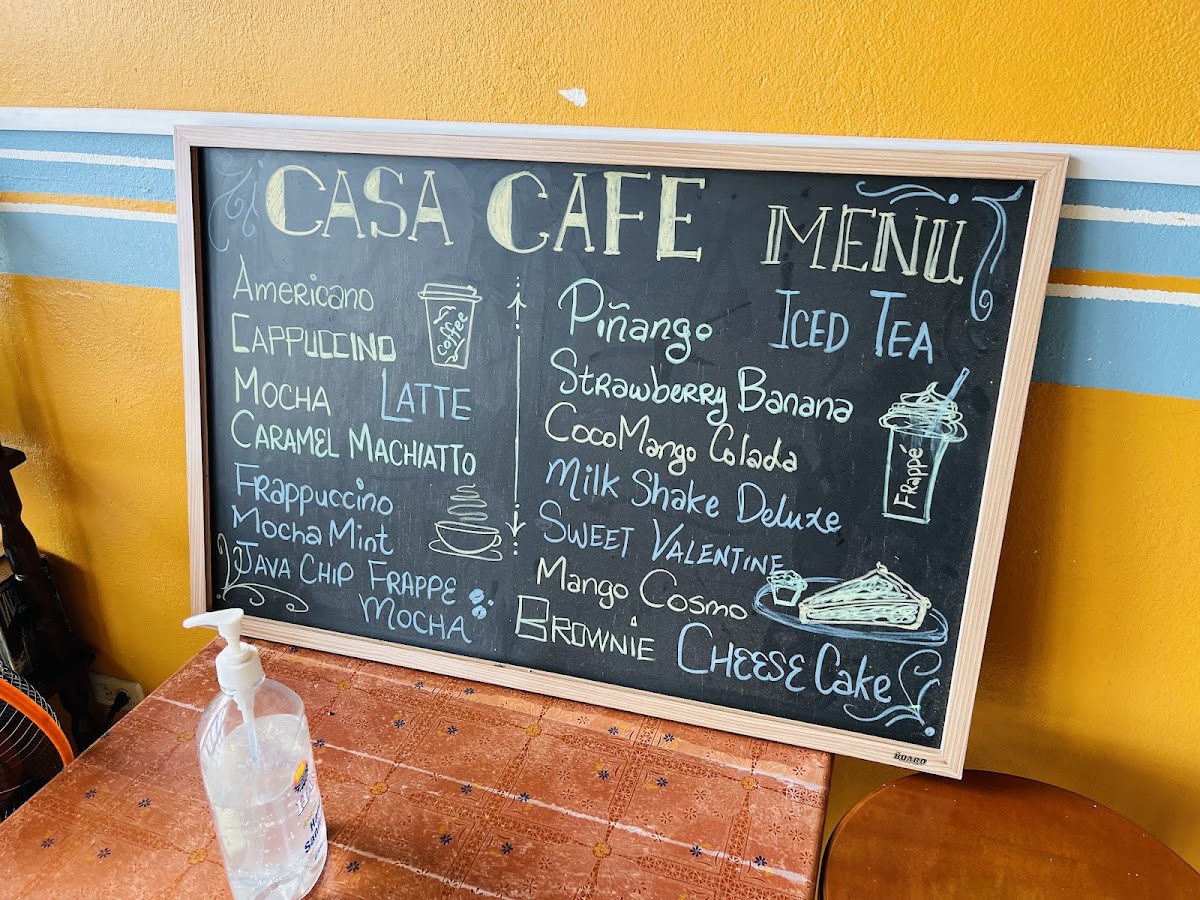 CASA CAFE MENU
Americano
CAPPUCCINO
MOCHA LATTE
CARAMEL MACHIATTO
Frappuccino
Mocha Mint
JAVA CHIP FRAPPE
MOCHA
coffee
Piñango ICED TEA
STRAWBERRY Banana
CocoMango Colada
Milk Shake Deluxe
SWEET VALENTINE
Mango Cosmo
BROWNiE CHEESE Cake
Frappé
BOARD